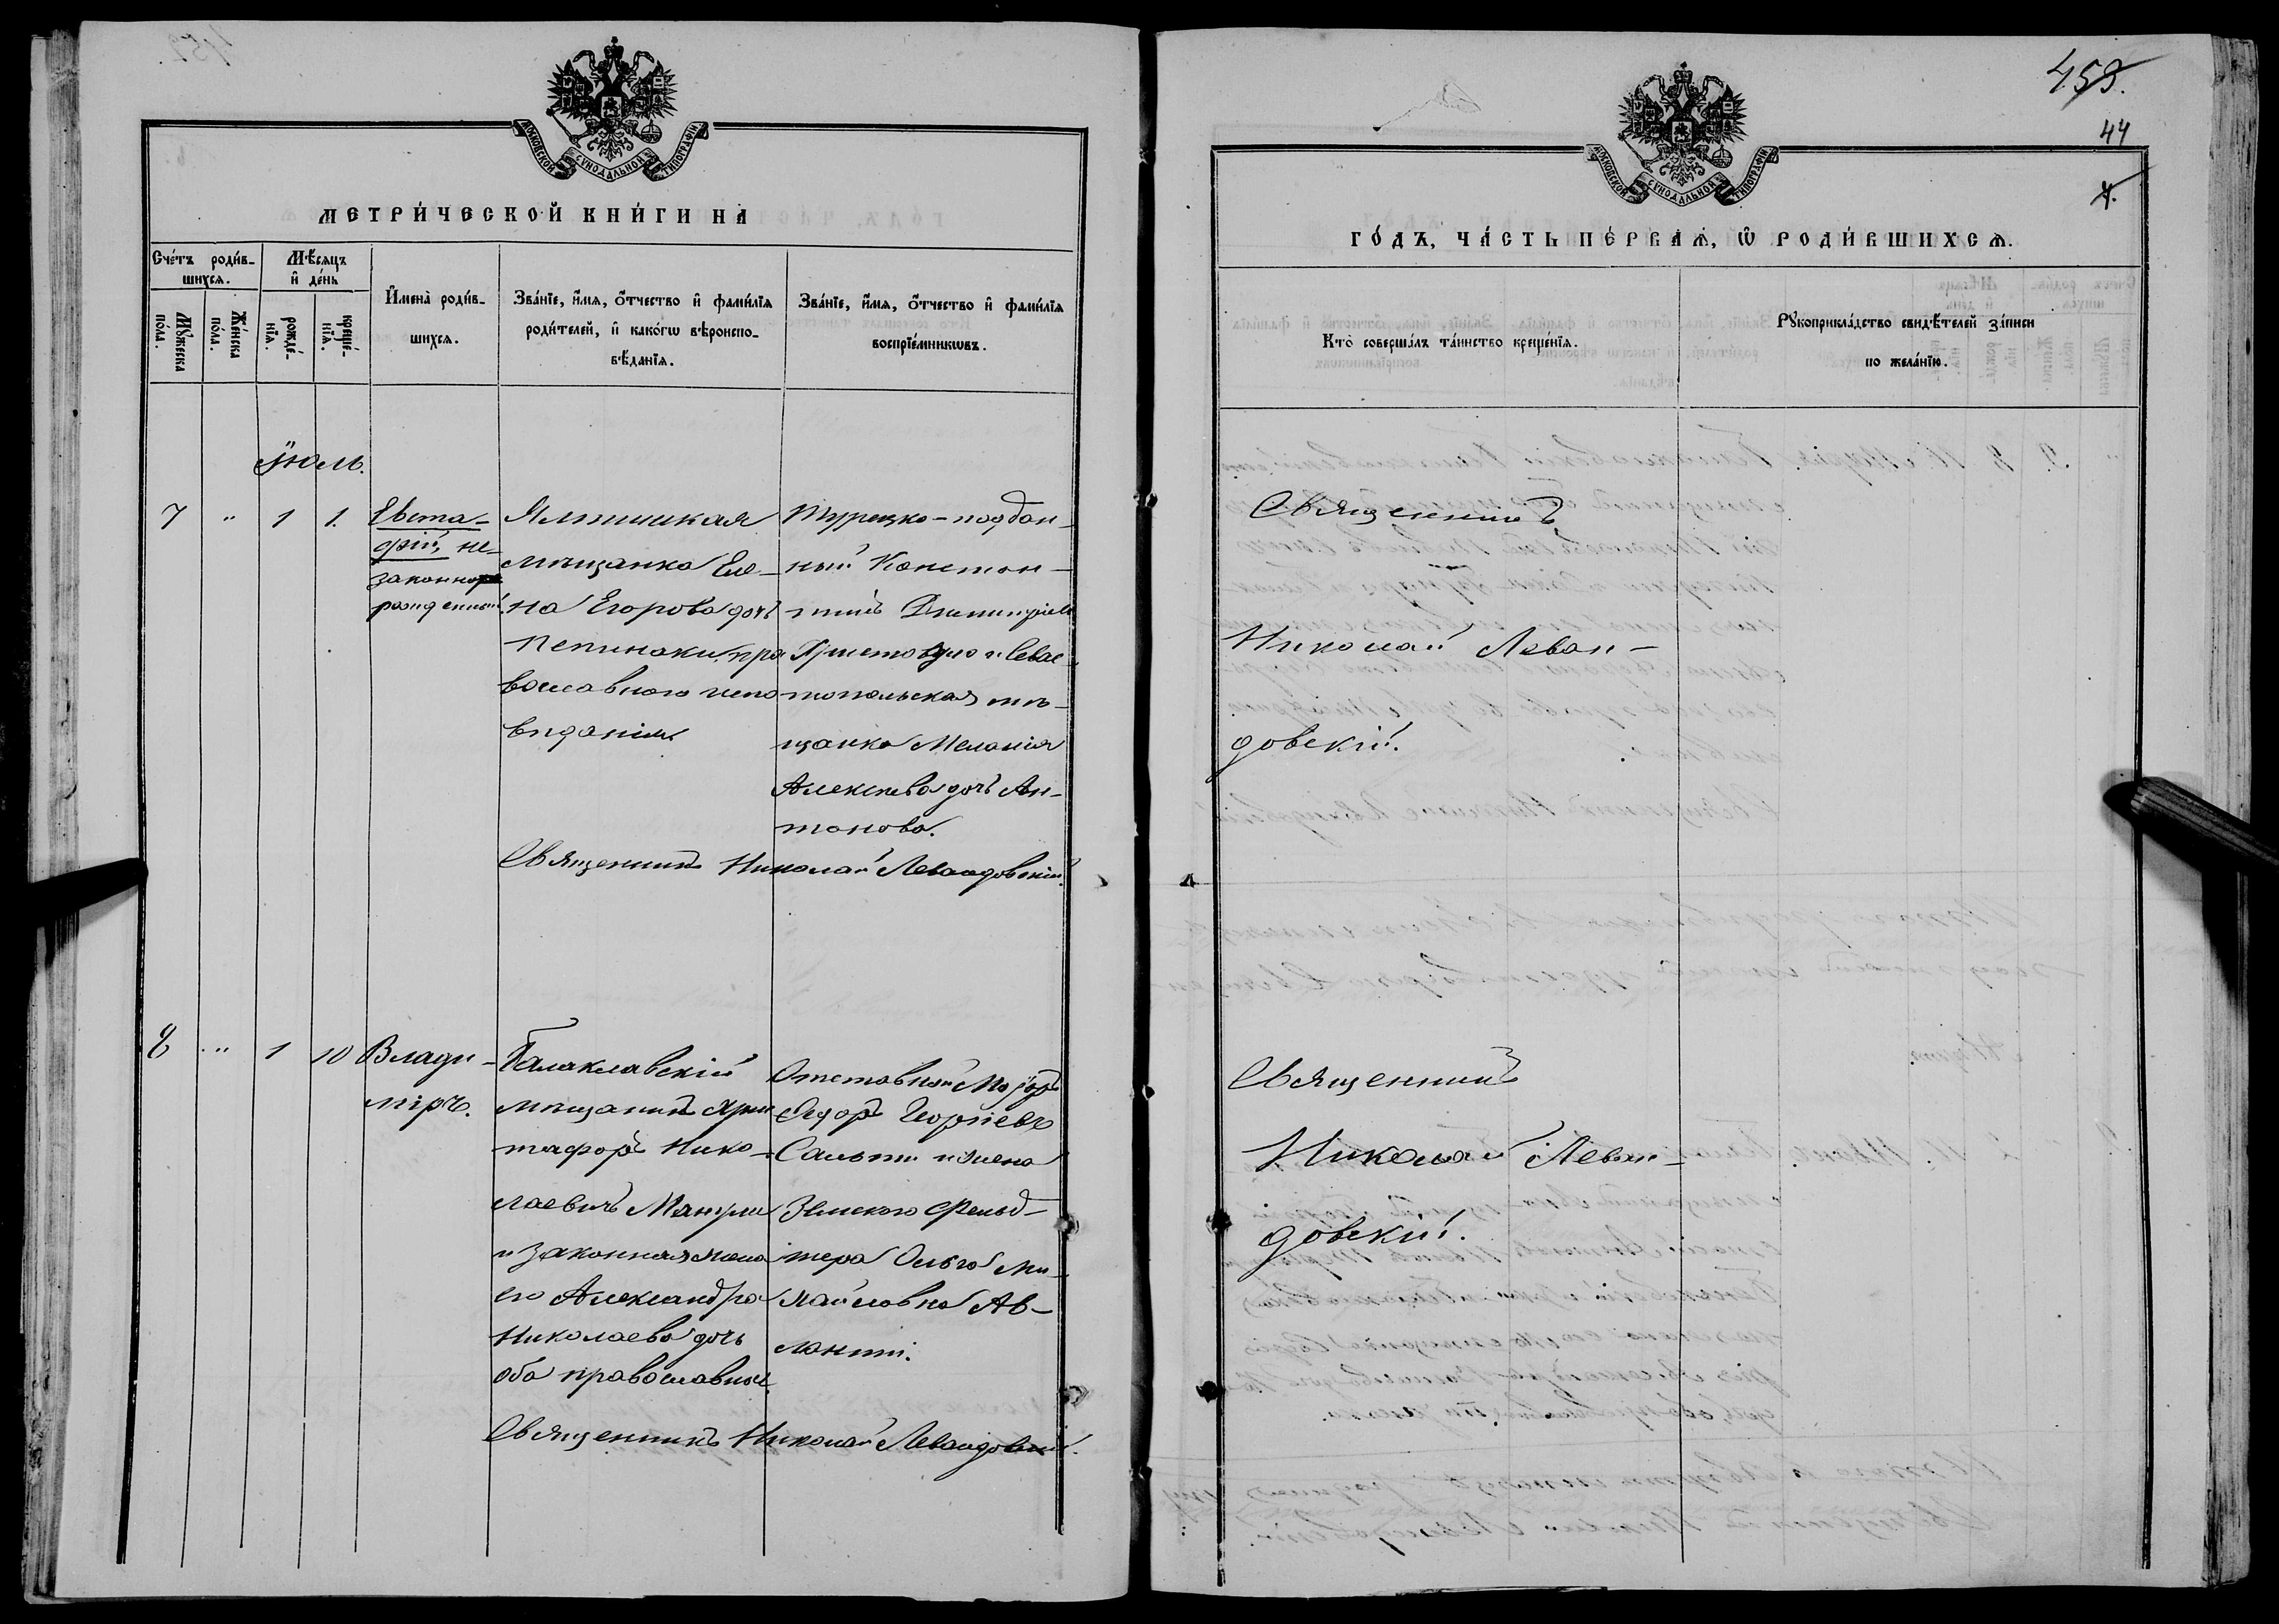 МОСКОВСКОЙ СѴНОДАЛЬНОЙ ТИПОГРАФІИ
МЕТРИ́ЧЕСКОЙ КНИ́ГИ НА
Сче́тъ роди́в-
шихся.
Мѣ́сяцъ
и҆ де́нь
Мꙋ́жеска
по́ла.
Же́нска
по́ла.
рожде́-
нїѧ.
креще́-
нїѧ.
И҆мена̀ роди́в-
шихсѧ.
Зва́нїе, и҆́мѧ, ѻ҆́тчество и҆ фами́лїѧ
роди́телей, и҆ како́гѡ вѣроиспо-
вѣ́данїѧ.
Зва́нїе, и҆́мѧ, ѻ҆́тчество и҆ фами́лїѧ
воспрїе́мникѡвъ.
Іюль.
7 " 1 1.
Евста-
фій, не-
законно
рожденный.
Ялтинская
мѣщанка Еле-
на Егорова дочь
Пепинаки, пра
вославнаго испо
вѣданія
Турецко-поддан-
ный Констан-
тинъ Дмитріевъ
Христовуло и Севас-
топольская мѣ-
щанка Меланія
Алексѣева дочь Ан-
тонова.
Священникъ Николай Левандовскій.
8 " 1 10
Влади-
міръ.
Балаклавскій
мѣщанинъ Хрис
тофоръ Нико-
лаевичъ Мангли
и законная жена
его Александра
Николаева дочь
оба православные.
Отставной Маіоръ
Ѳедоръ Георгіевъ
Сальти и жена
Земскаго Фельд-
шера Ольга Ми-
хайловна Ав-
ланти.
Священникъ Николай Левандовскій.
458.
44
4.
МОСКОВСКОЙ СѴНОДАЛЬНОЙ ТИПОГРАФІИ
ГО́ДЪ, ЧА́СТЬ ПЕ́РВАѦ, Ѡ҆ РОДИ́ВШИХСѦ.
Кто̀ соверша́лъ та́инство креще́нїѧ.
Рꙋкоприкла́дство свидѣ́телей за́писи
по жела́нїю.
Священникъ
Николай Леван-
довскій.
Священникъ
Николай Леван-
довскій.